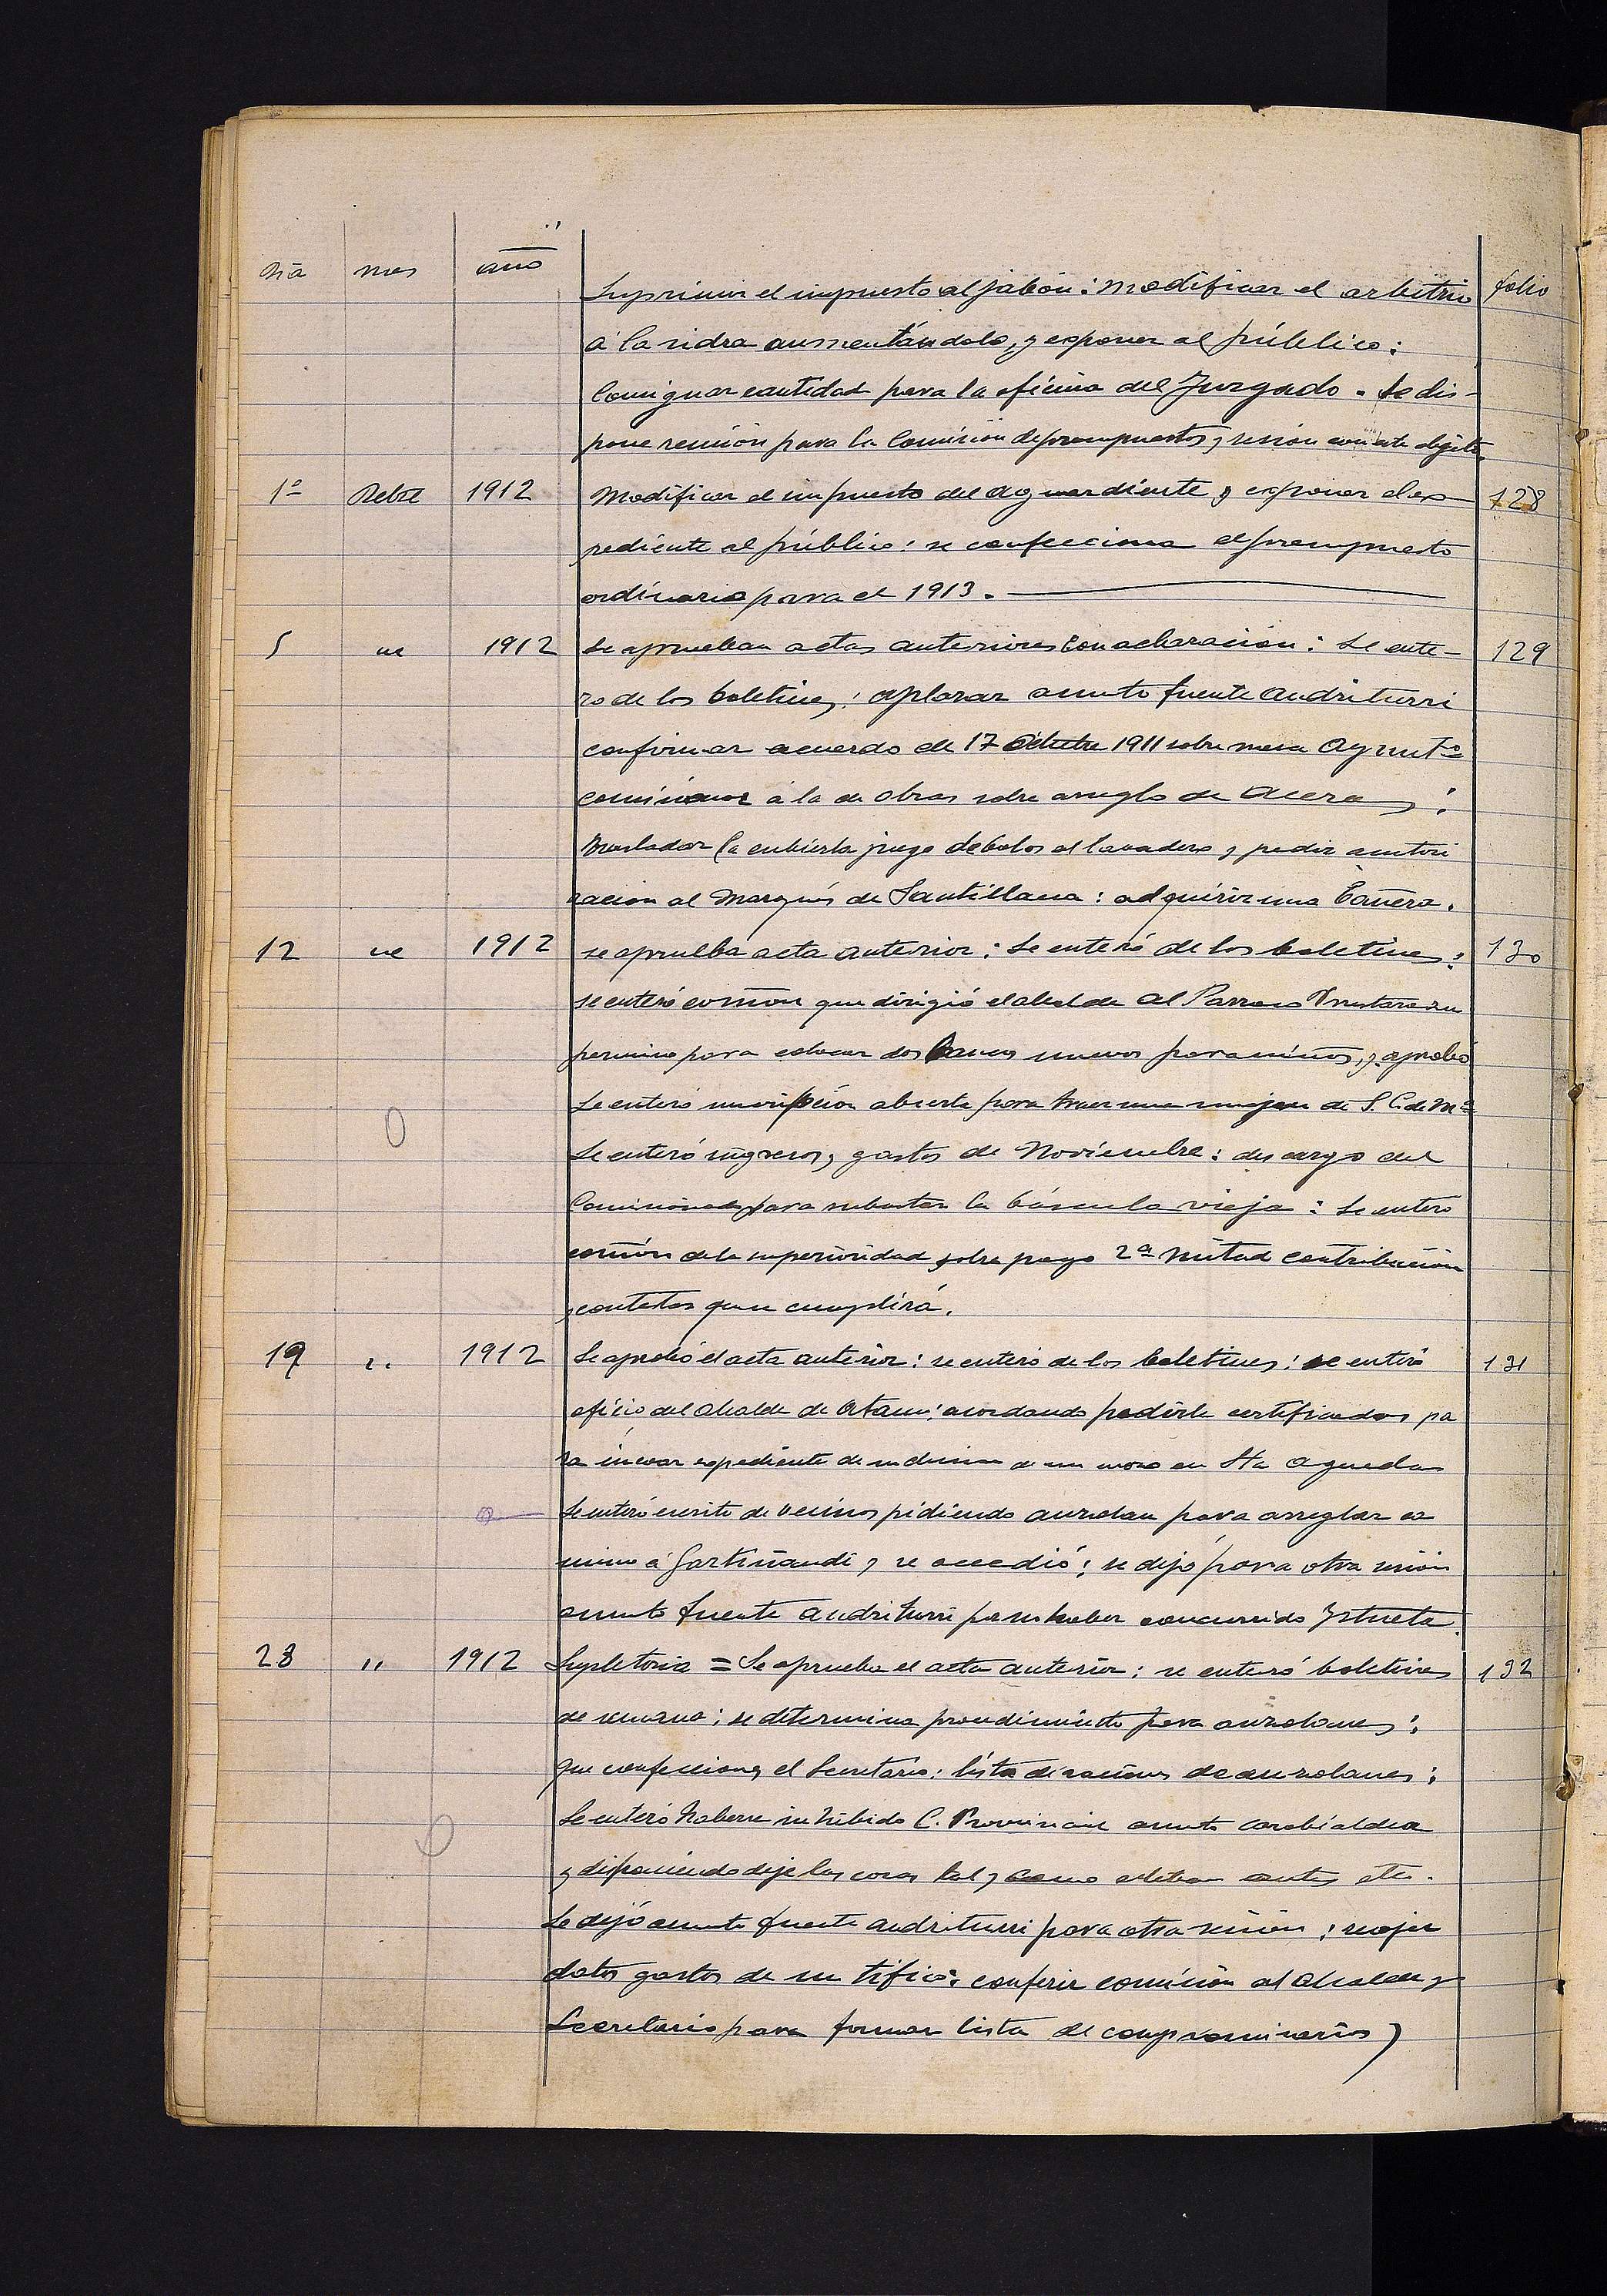 dia mes año folio
Suprimir el impuesto al jabón: modificar el arbitrio
á la sidra aumentándolo, y exponer al público:
Consignar cantidad para la oficina del Juzgado. Se dis-
pone reunión para la Comisión de presupuestos y sesión con este objeto.
1º Dcbre 1912 Modificar el impuesto del aguardiente y exponer el ex 128
pediente al público: se confecciona el presupuesto
ordinario para el 1913.
5 " 1912 Se aprueban actas anteriores con aclaración: Se ente- 129
ró de los boletines: aplazar asunto fuente Andriturri
confirmar acuerdo de 17 Octubre 1911 sobre mesa Ayuntº
comisionar á la de obras sobre arreglo de Aceras:
Trasladar la cubierta juego de bolos al lavadero y pedir autori
zacion al Marqués de Santillana: adquirir una Bañera.
12 " 1912 se aprueba acta anterior: Se enteró de los boletines: 130
se enteró comón que dirigió el alcalde al Parroco
permiso para colocar dos bancos nuevos para niños, y aprobó
Se enteró suscripción abierta para traer una imagen de S. C. de Mª
Se enteró ingresos y gastos de Noviembre: descargo del
Comisionado para subastar la báscula vieja: Se enteró
comón de la superioridad sobre pago 2ª mitad contribución
y contestar que se cumplirá.
19 " 1912 Se aprobó el acta anterior: se enteró de los boletines: se enteró 131
oficio del Alcalde de Ataun: acordando pedirle certificados pa
ra incoar expediente de reclusion de un mozo en Sta Agueda
Se enteró escrito de vecinos pidiendo auzolan para arreglar ca
mino á Gartiñandi y se accedió: se dejó para otra sesión
asunto fuente Andriturri por no haber concurrido Iztueta.
28 " 1912 Supletoria = Se aprueba el acta anterior: se enteró boletines 132
de semana: se determina procedimiento para auzolanes:
que confecciones el Secretario: lista de raciones de auzolanes:
Se enteró haberse inhibido C. Provincial asunto
y disponiendo deje las cosas tal y como estaban antes etc.
Se dejó asunto fuente Andriturri para otra sesión: recojer
datos gastos de un tífico: conferir comisión al Alcalde y
Secretario para formar lista de compromisarios)